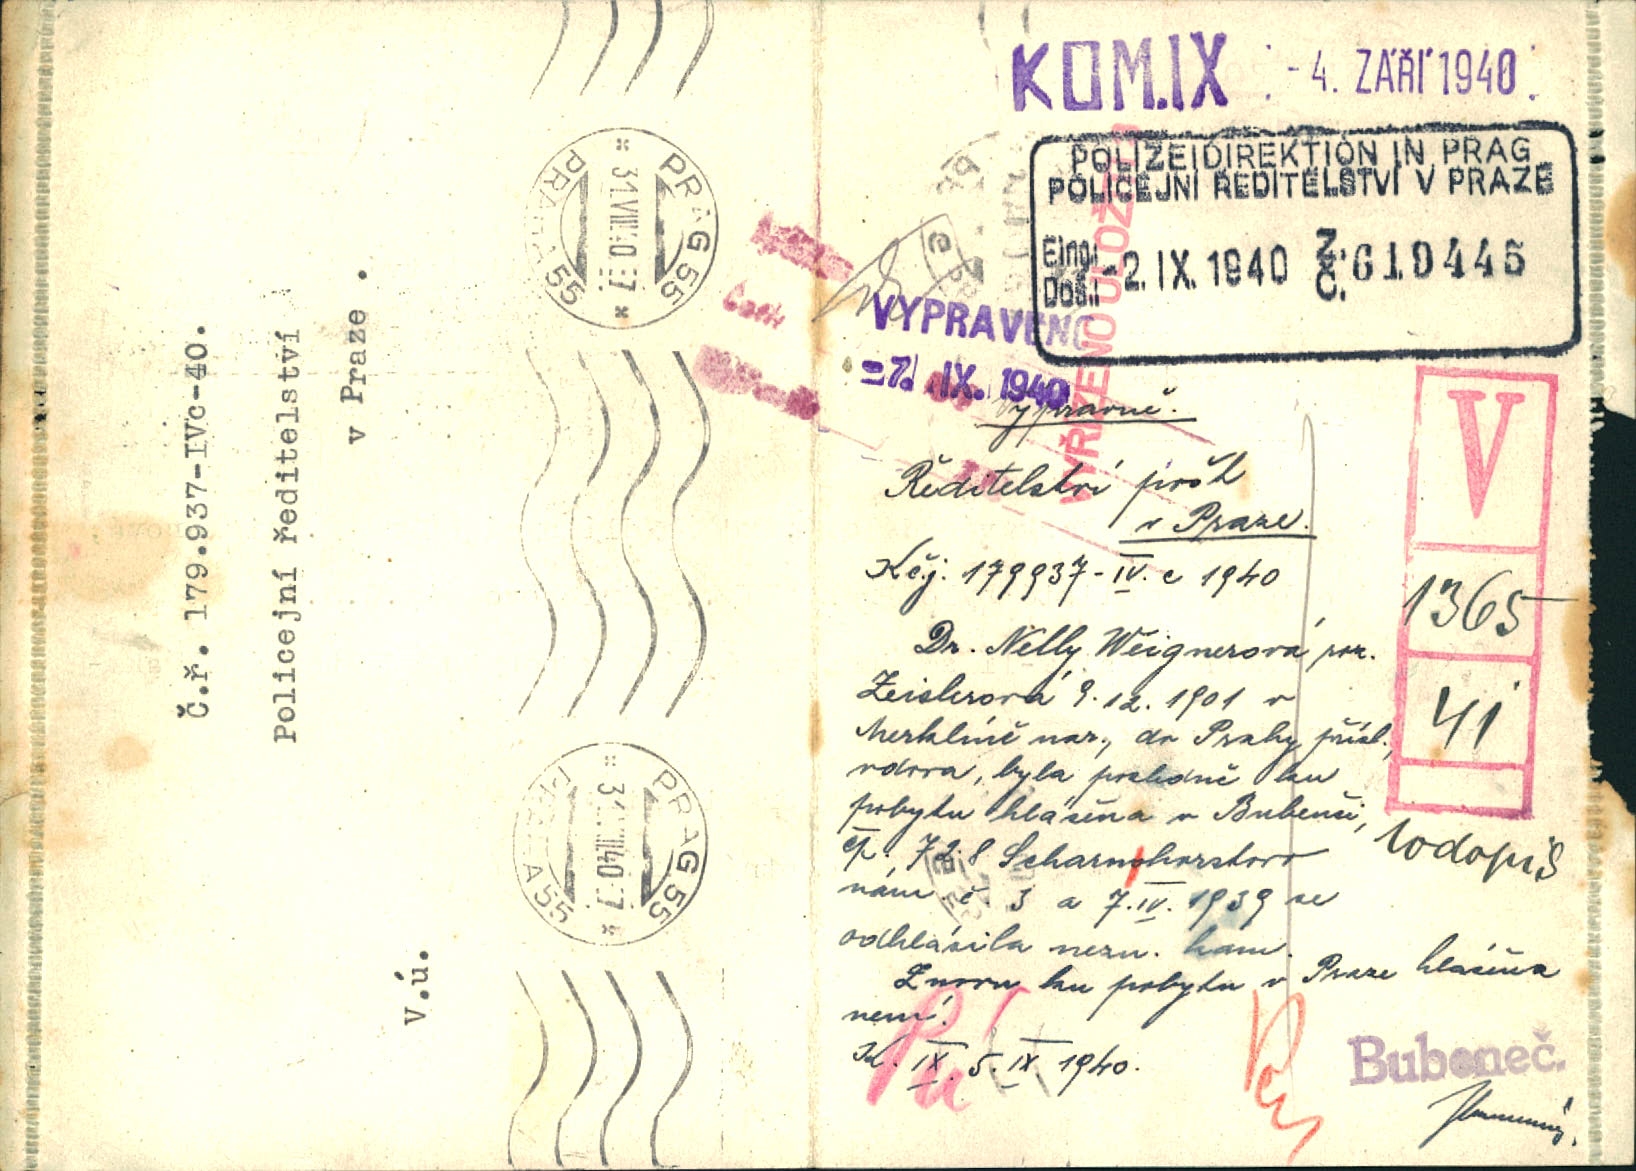 Č.ř. 179.937-IVc-40.
Policejní ředitelství
v Praze .
V.ú.
PRAG 55
31.VIII.40.-7
PRAHA 55
PRAG 55
31.VIII.40.-7
PRAHA 55
KOM.IX - 4. ZÁŘÍ 1940
POLIZEIDIREKTION IN PRAG
POLICEJNÍ ŘEDITELSTVÍ V PRAZE
Eing:
Doš.: -2. IX. 1940 Z. Č. 610445
VYŘÍZENO ULOŽEN
VYPRAVENO
=7. IX. 1940
Výpravně.
Ředitelství pošt
v Praze.
K čj. 179937-IV. c 1940
Dr. Nelly Weignerová roz.
Zeislerová 9.12.1901 v
Merklíně nar., do Prahy přísl.,
vdova, byla posledně ku
pobytu hlášena v Bubenči,
čp. 728 Scharnhorstovo
nám. č. 3 a 7.IV. 1939 se
odhlásila nezn. kam.
Znovu ku pobytu v Praze hlášena
není.
K. IX. 5. IX. 1940.
V
1365
41
vodopis
Bubeneč.